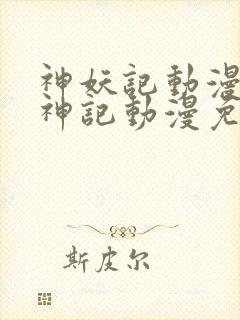 神妖記動漫
神記動漫免
斯皮尔